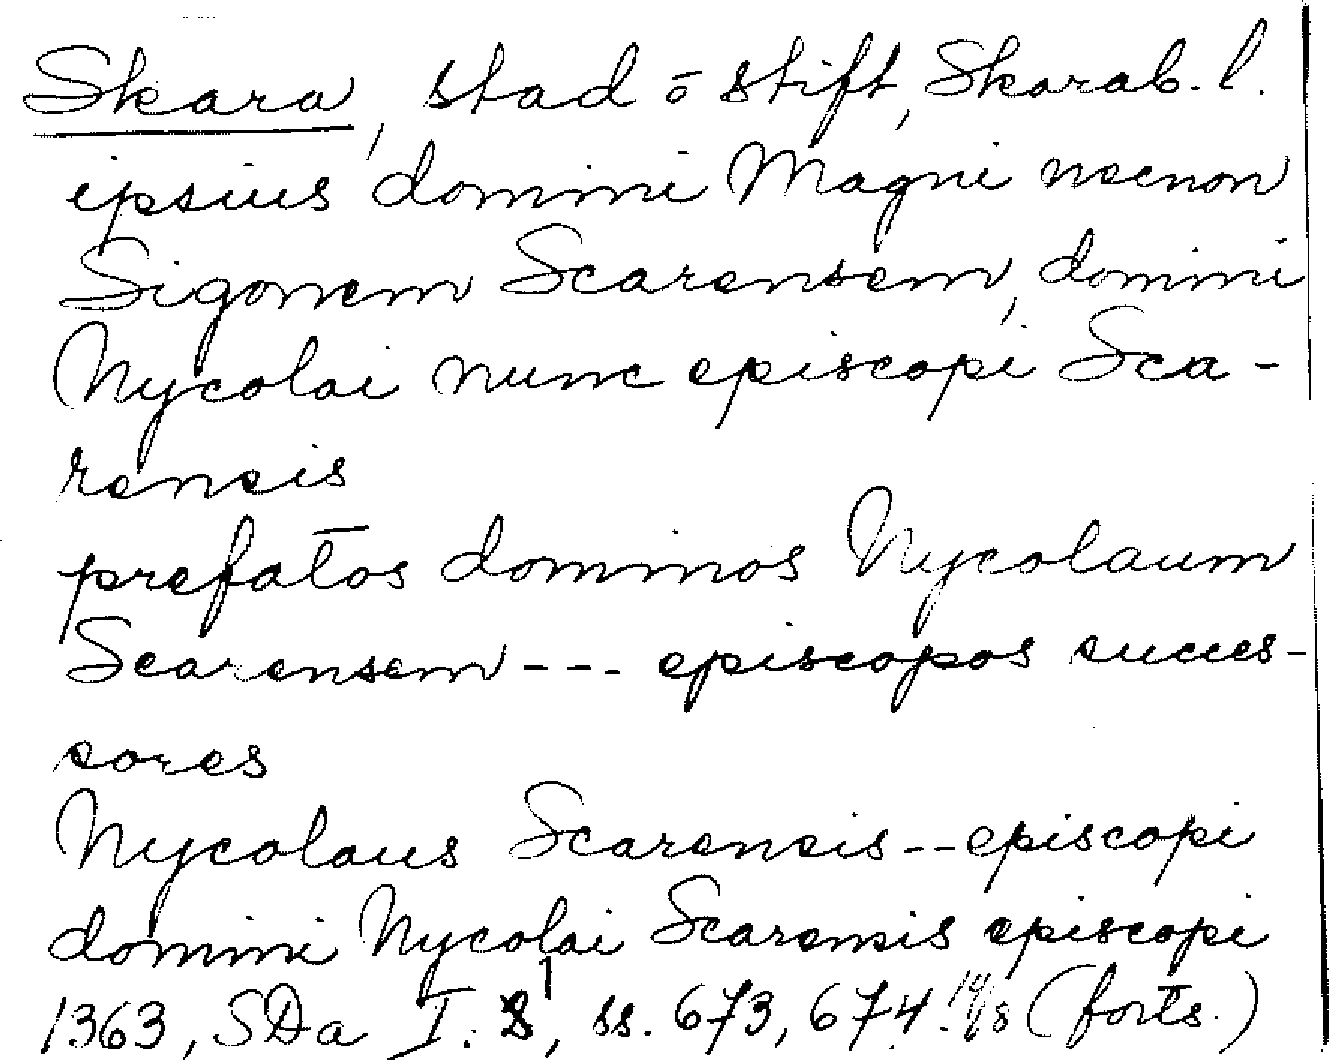 Skara, stad o stift, Skarab. l.
ipsius domini Magni necnon
Sigonem Scarensem, domini
Nycolai nunc episcopi Sca-
rensis
prefatos dominos Nycolaum
Scarensem --- episcopos succes-
sores
Nycolaus Scarensis -- episcopi
domini Nycolai Scarensis episcopi
1363, SDa I: 1, ss. 673, 674. (forts.)